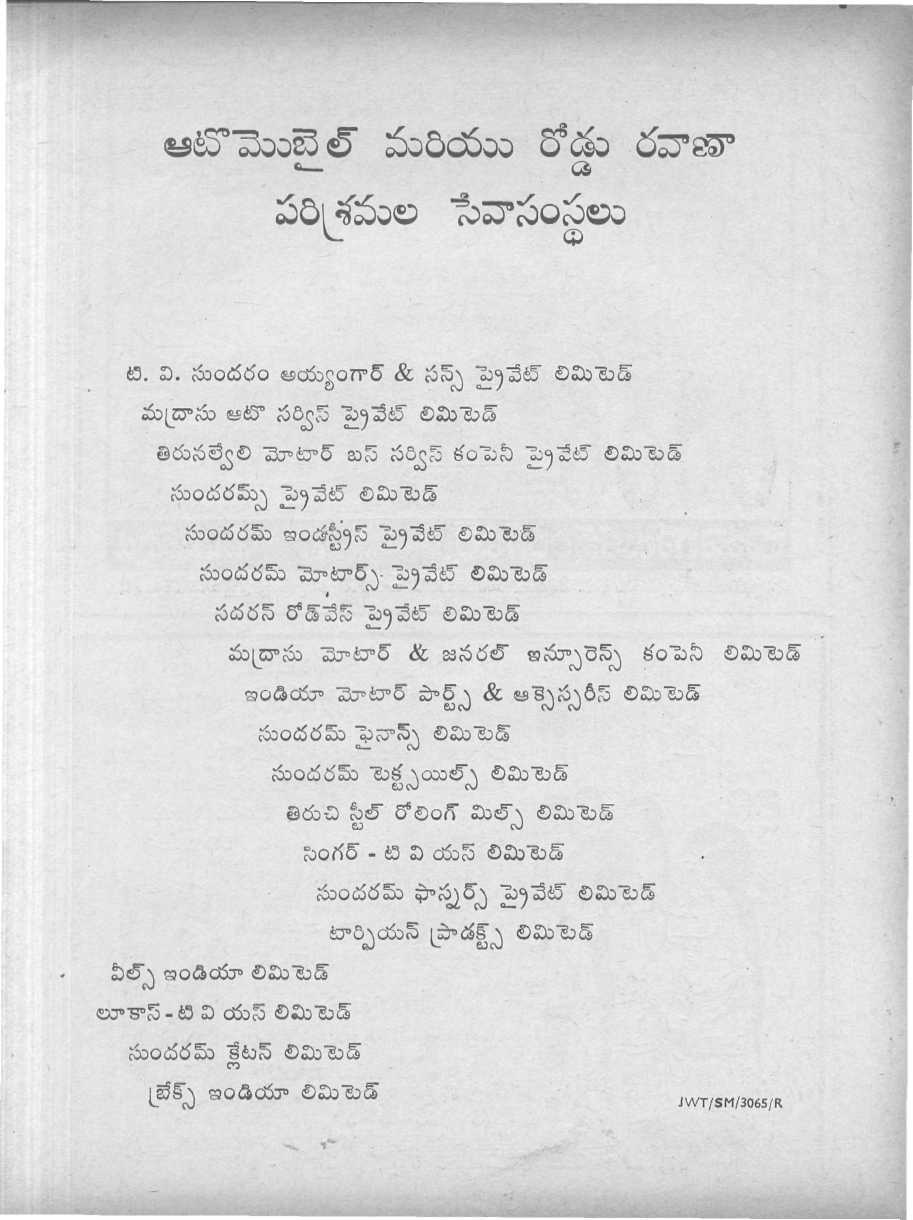 ఆటొమొబైల్ మరియు రోడ్డు రవాణా
పరిశ్రమల సేవాసంస్థలు
టి. వి. సుందరం అయ్యంగార్ & సన్స్ ప్రైవేట్ లిమిటెడ్
మద్రాసు ఆటొ సర్విస్ ప్రైవేట్ లిమిటెడ్
తిరునల్వేలి మోటార్ బస్ సర్విస్ కంపెనీ ప్రైవేట్ లిమిటెడ్
సుందరమ్స్ ప్రైవేట్ లిమిటెడ్
సుందరమ్ ఇండస్ట్రీస్ ప్రైవేట్ లిమిటెడ్
సుందరమ్ మోటార్స్ ప్రైవేట్ లిమిటెడ్
సదరన్ రోడ్‌వేస్ ప్రైవేట్ లిమిటెడ్
మద్రాసు మోటార్ & జనరల్ ఇన్సూరెన్స్ కంపెనీ లిమిటెడ్
ఇండియా మోటార్ పార్ట్స్ & ఆక్సెస్సరీస్ లిమిటెడ్
సుందరమ్ ఫైనాన్స్ లిమిటెడ్
సుందరమ్ టెక్ట్సయిల్స్ లిమిటెడ్
తిరుచి స్టీల్ రోలింగ్ మిల్స్ లిమిటెడ్
సింగర్ - టి వి యస్ లిమిటెడ్
సుందరమ్ ఫాస్నర్స్ ప్రైవేట్ లిమిటెడ్
టార్పియన్ ప్రాడక్ట్స్ లిమిటెడ్
వీల్స్ ఇండియా లిమిటెడ్
లూకాస్ - టి వి యస్ లిమిటెడ్
సుందరమ్ క్లేటన్ లిమిటెడ్
బ్రేక్స్ ఇండియా లిమిటెడ్
JWT/SM/3065/R